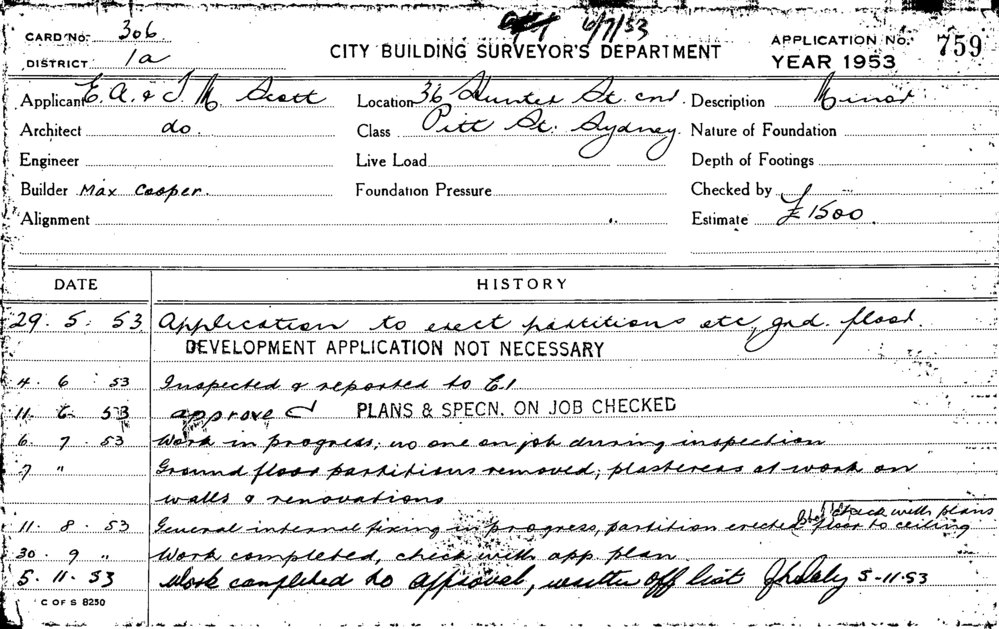 6/7/53
CARD No. 306
CITY BUILDING SURVEYOR'S DEPARTMENT
APPLICATION No. 759
DISTRICT 1a
YEAR 1953
Applicant E. A. & T M Scott
Location 36 Hunter St. cnr.
Description Minor
Architect do.
Class Pitt St. Sydney.
Nature of Foundation
Engineer
Live Load
Depth of Footings
Builder Max Cooper.
Foundation Pressure
Checked by
Alignment
Estimate £1500.
DATE HISTORY
29. 5. 53 Application to erect partitions etc, gnd. floor.
DEVELOPMENT APPLICATION NOT NECESSARY
4. 6 . 53 Inspected & reported to C.I.
11. 6. 53 approved PLANS & SPECN. ON JOB CHECKED
6. 7. 53 Work in progress; no one on job during inspection
7 " Ground floor partitions removed; plasterers at work on
walls & renovations
check with plans
11. 8. 53 General internal fixing in progress, partition erected floor to ceiling
30. 9 " Work completed, check with app plan
5. 11. 53 Work completed to approval, written off list 5-11-53
C OF S 8250